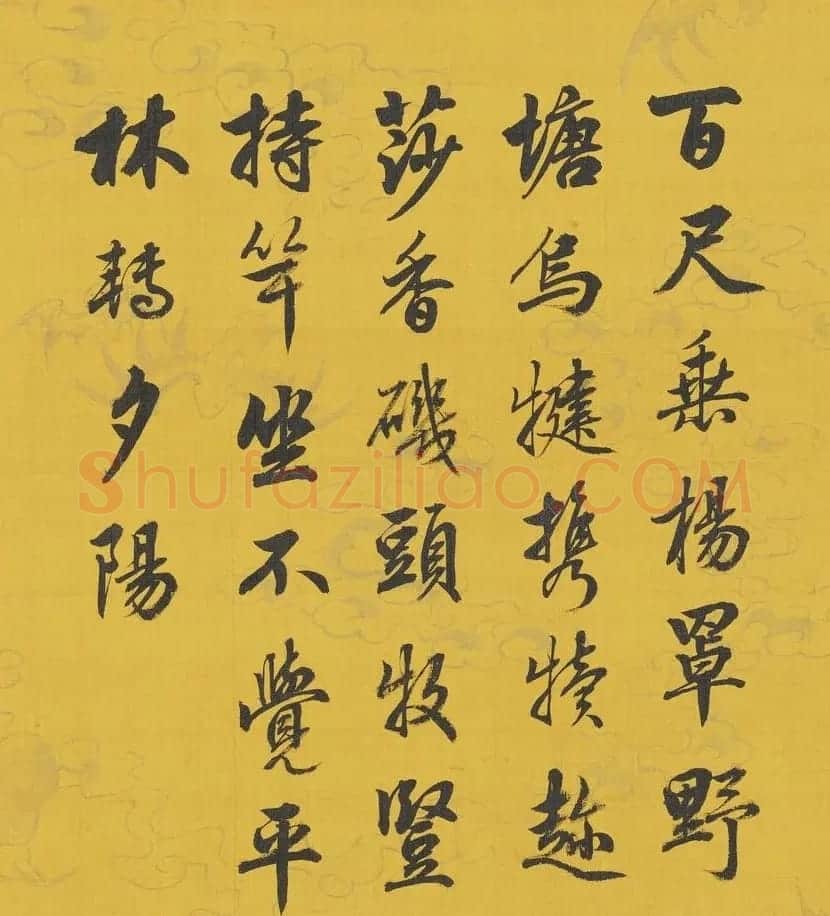 百尺垂楊罩野
塘烏犍携犢趂
莎香磯頭牧豎
持竿坐不覺平
林轉夕陽
Shufaziliao.COM